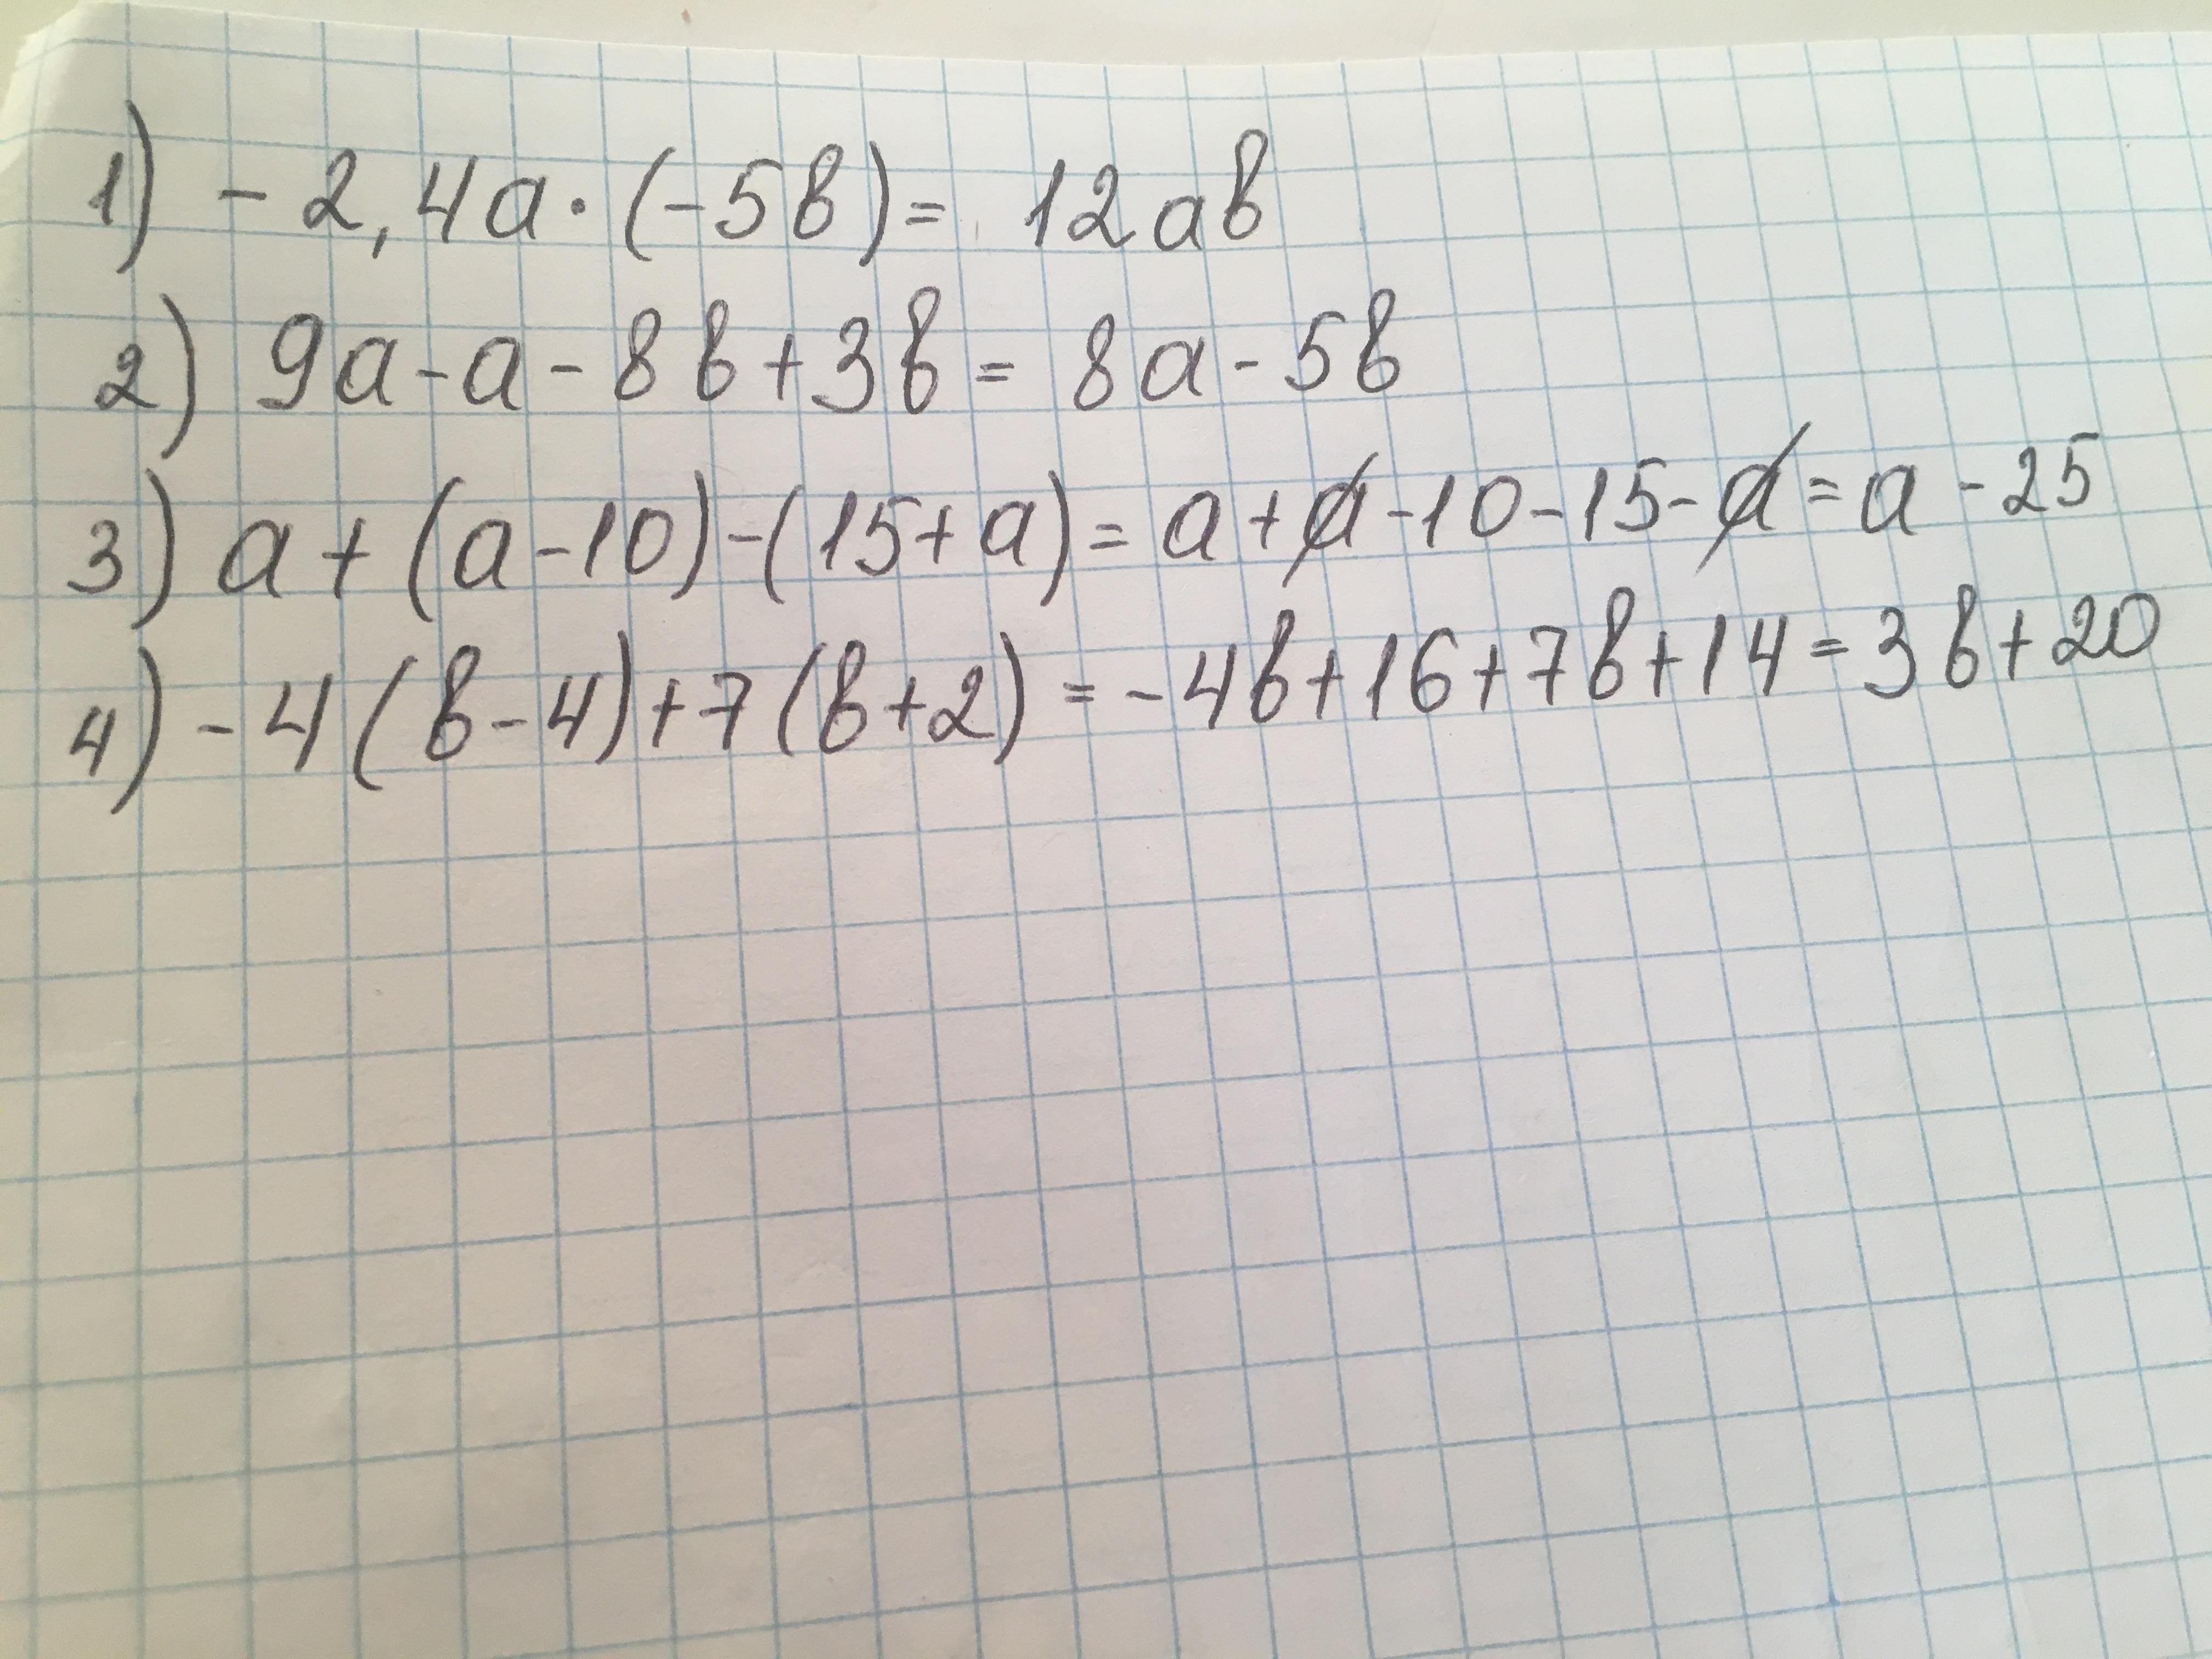 1) -2,4a·(-5b)= 12ab
2) 9a-a-8b+3b= 8a-5b
3) a+(a-10)-(15+a)= a+a-10-15-a=a-25
4) -4(b-4)+7(b+2)=-4b+16+7b+14=3b+20